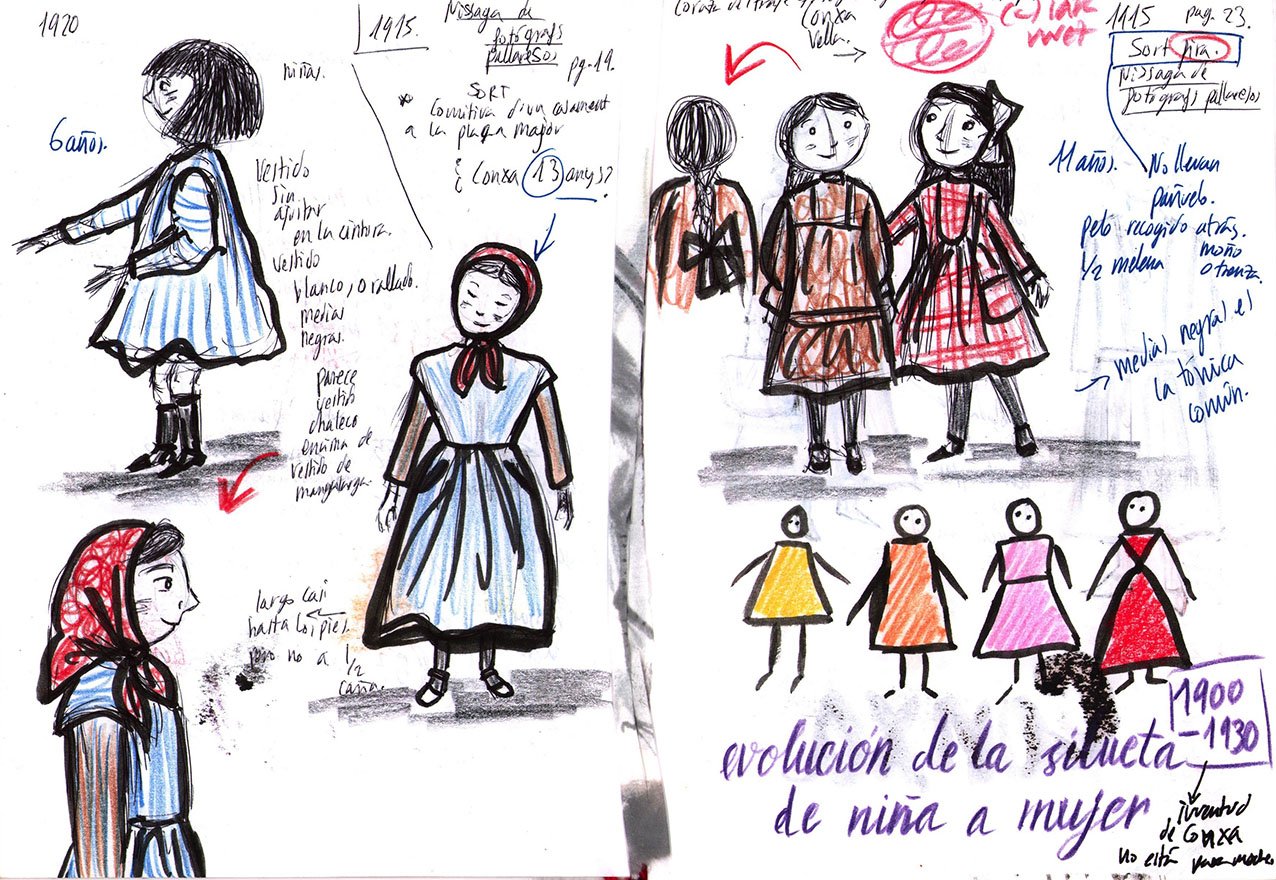 1920
6 años.
niñas.
Vestido
sin
ajustar
en la cintura.
vestido
blanco, o rallado.
medias
negras.
parece
vestido
chaleco
encima de
vestido de
mangalarga.
1915.
Nissaga de
fotógrafs
pallaresos
pg. 19.
SORT
Comitiva d'un casament
a la plaça major
¿Conxa 13 anys?
largo casi
hasta los pies.
pero no a 1/2
caña.
Conxa
Vella.
1915 pag. 23.
Sort fira.
Nissaga de
fotógrafs pallaresos
11 años.
No llevan
pañuelo.
pelo recogido atrás.
1/2 melena
moño
o trenza.
medias negras es
la tónica
común.
evolución de la silueta
de niña a mujer
1900
-1930
juventud
de Conxa
no está